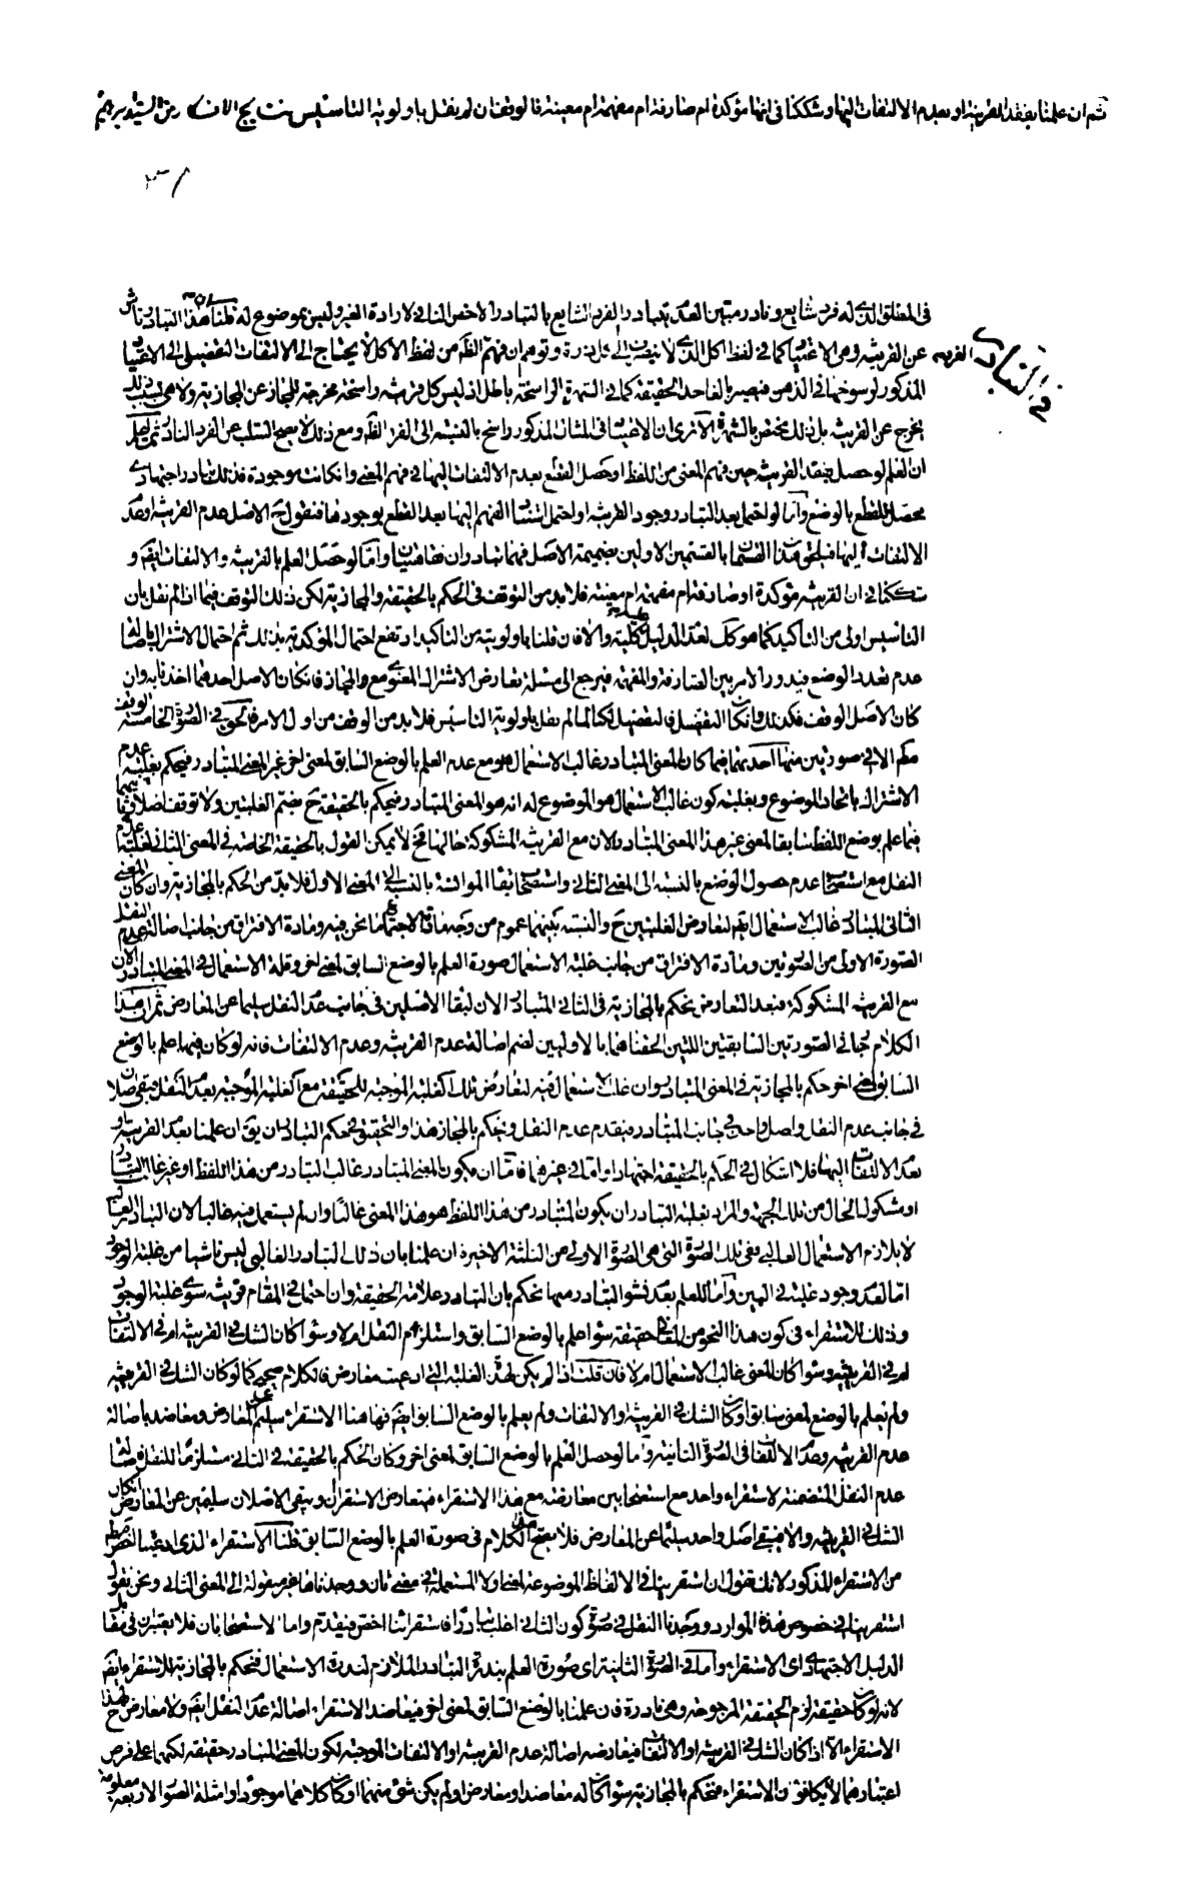 ثم ان علمنا بفقد القرينة او بعدم الالتفات اليها وشككنا فى انها مؤكدة ام صارفة ام مفهمة ام معينة فالوقف ان لم نقل باولوية التاسيس نتايج الافكار من السيد ابرهيم
فى التبادر
فى المطلق الذى له فرد شايع ونادر مبين العدم تبادر الفرد الشايع بالتبادر الاخص النافى لارادة الغير وليس بموضوع له قلنا هذا التبادر ناش
عن القرينة وهى الاغتيا كما فى لفظ اكل الذى لا ينصرف الى وتوهم ان فهم الظهر من لفظ الاكل لا يحتاج الى الالتفات التفصيلى الى الاغتيا
المذكور لرسوخها فى الذهن فيصير بالفا حد الحقيقة كما فى الشهرة الراسخة باطل اذ ليس كل قرينة راسخة مخرجة للمجاز عن المجازية ولا هى بذلك
يخرج عن القرينة بل ذلك مختص بالشهرة الا ترى ان الاغتيا فى المثال المذكور راسخ بالنسبة الى الفرد الظهر ومع ذلك لا يصح السلب عن الفرد النادر ثم اعلم
ان العلم لو حصل بفقد القرينة حين فهم المعنى من اللفظ او حصل القطع بعدم الالتفات اليها فى فهم المعنى وان كانت موجودة فذلك تبادر اجتهادى
محصل للقطع بالوضع واما لو احتمل بعد التبادر وجود القرينة او احتمل استناد الفهم اليها بعد القطع بوجودها فنقول ح الاصل عدم القرينة وعدم
الالتفات اليها فيلحق هذا القسمان بالقسمين الاولين بضميمة الاصل فهما تبادران واما لو حصل العلم بالقرينة والالتفات ايضا و
شككنا فى ان القرينة مؤكدة او صارفة ام مفهمة ام معينة فلا بد من التوقف فى الحكم بالحقيقة والمجازية لكن ذلك التوقف فيما اذا لم نقل بان
التاسيس اولى من التاكيد كما هو كك لعدم الدليل عليه والا فان قلنا باولويته من التاكيد ارتفع احتمال المؤكدية بذلك ثم احتمال الاشتراك باصالة
عدم تعدد الوضع فيدور الامر بين الصارفة والمفهمة فيرجع الى مسئلة تعارض الاشتراك المعنوى مع المجاز فان كان الاصل احدهما اخذنا به وان
كان الاصل الوقف فكذلك وان كان التفصيل فالتفصيل كما لم نقل باولوية التاسيس فلا بد من الوقف من اول الامر فالحق فى الصورة الخامسة الوقف
مكم الا فى صورتين منها احدهما فيما كان المعنى المتبادر غالب الاستعمال هو مع عدم العلم بالوضع السابق لمعنى اخر غير المعنى المتبادر فيحكم بغلبة عدم
الاشتراك باتحاد الموضوع وبغلبة كون غالب الاستعمال هو الموضوع له انه هو المعنى المتبادر فيحكم بالحقيقة ح بضم الغلبتين ولا توقف اصلا وثانيهما
فيما علم بوضع اللفظ سابقا لمعنى غير هذا المعنى المتبادر الان مع القرينة المشكوكة حالها فح لا يمكن القول بالحقيقة الخاصة فى المعنى الثانى لغلبة عدم
النقل مع استصحاب عدم حصول الوضع بالنسبة الى المعنى الثانى واستصحاب بقاء الموانسة بالنسبة الى المعنى الاول فلا بد من الحكم بالمجازية وان كان المعنى
الثانى المتبادر غالب الاستعمال ايضا لتعارض الغلبتين ح والنسبة بينهما عموم من وجه فمادة الاجتماع ما نحن فيه ومادة الافتراق من جانب اصالة عدم النقل
الصورة الاولى من الصورتين ومادة الافتراق من جانب غلبة الاستعمال صورة العلم بالوضع السابق لمعنى اخر وقلة الاستعمال فى المعنى المتبادر الان
مع القرينة المشكوكة فبعد التعارض يحكم بالمجازية فى الثانى المتبادر الان لبقاء الاصلين فى جانب عدم النقل سليما عن المعارض ثم ان هذا
الكلام جار فى الصورتين السابقتين اللتين الحقناهما بالاوليين لضم اصالة عدم القرينة وعدم الالتفات فانه لو كان فيهما علم بالوضع
السابق لمعنى اخر حكم بالمجازية فى المعنى المتبادر وان غلب الاستعمال فيه لتعارض تلك الغلبة الموجبة للحقيقة مع الغلبة الموجبة لعدم النقل فيبقى اصلان
فى جانب عدم النقل واصل واحد فى جانب المتبادر فيقدم عدم النقل ونحكم بالمجاز هذا والتحقيق فى حكم التبادر ان يق ان علمنا بعدم القرينة او
بعدم الالتفات اليها فلا اشكال فى الحكم بالحقيقة اجتهادا واما فى غيرها فاما ان يكون المعنى المتبادر غالب التبادر من هذا اللفظ او غير غالب التبادر
او مشكوك الحال من تلك الجهة والمراد بغلبة التبادر ان يكون المتبادر من هذا اللفظ هو هذا المعنى غالبا وان لم يستعمل فيه غالبا لان التبادر الغالبى
لا يلازم الاستعمال الغالبى ففى تلك الصورة التى هى الصورة الاولى من الثلثة الاخيرة ان علمنا بان ذلك التبادر الغالبى ليس ناشيا من غلبة الوجود
اما لعدم وجود غلبة فى البين واما للعلم بعدم نشو التبادر منها نحكم بان التبادر علامة الحقيقة وان احتمل فى المقام قرينة سوى غلبة الوجود
وذلك للاستقراء فى كون هذا النحو من المعانى حقيقة سواء علم بالوضع السابق واستلزم النقل ام لا وسواء كان الشك فى القرينة ام فى الالتفات
ام فى القرينية وسواء كان المعنى غالب الاستعمال ام لا فان قلت اذا لم يكن لهذه الغلبة التى ادعيت معارض فالكلام صحيح كما لو كان الشك فى القرينية
ولم نعلم بالوضع لمعنى سابق او كان الشك فى القرينة والالتفات ولم يعلم بالوضع السابق ايضا فها هنا الاستقراء سليم عن المعارض ومعاضد باصالة
عدم القرينة وعدم الالتفات فى الصورة الثانية واما لو حصل العلم بالوضع السابق لمعنى اخر وكان الحكم بالحقيقة فى الثانى مستلزما للنقل فاصالة
عدم النقل المتضمنة لاستقراء واحد مع استصحابين معارضة مع هذا الاستقراء فيتعارض الاستقراءان ويبقى الاصلان سليمين عن المعارض ان كان
الشك فى القرينية والا فيبقى اصل واحد سليما عن المعارض فلا يصح الكلام فى صورة العلم بالوضع السابق قلنا الاستقراء الذى ادعيناه اخص
من الاستقراء المذكور لانك تقول ان استقرينا فى الالفاظ الموضوعة لمعنى اولا المستعملة فى معنى ثان ووجدناها غير منقولة الى المعنى الثانى ونحن نقول
استقرينا فى خصوص هذه الموارد ووجدنا النقل فى صورة كون الثانى اغلب تبادرا فاستقرائنا اخص فيقدم واما الاستصحابان فلا يعتبران فى مقابل
الدليل الاجتهادى اى الاستقراء واما فى الصورة الثانية اى صورة العلم بندرة التبادر الملازم لندرة الاستعمال فنحكم بالمجازية للاستقراء ايضا
لانه لو كان حقيقة لزم الحقيقة المرجوحة وهى نادرة فان علمنا بالوضع السابق لمعنى اخر فيعاضد الاستقراء اصالة عدم النقل ايضا ولا معارض لهذا
الاستقراء الا اذا كان الشك فى القرينة او الالتفات فيعارضه اصالة عدم القرينة او الالتفات الموجبة لكون المعنى المتبادر حقيقة لكنهما على فرض
اعتبارهما لا يكافئون الاستقراء فنحكم بالمجازية سواء كان له معاضد او معارض او لم يكن شئ منهما او كان كلاهما موجودا وامثلة الصور الاربعة معلومة